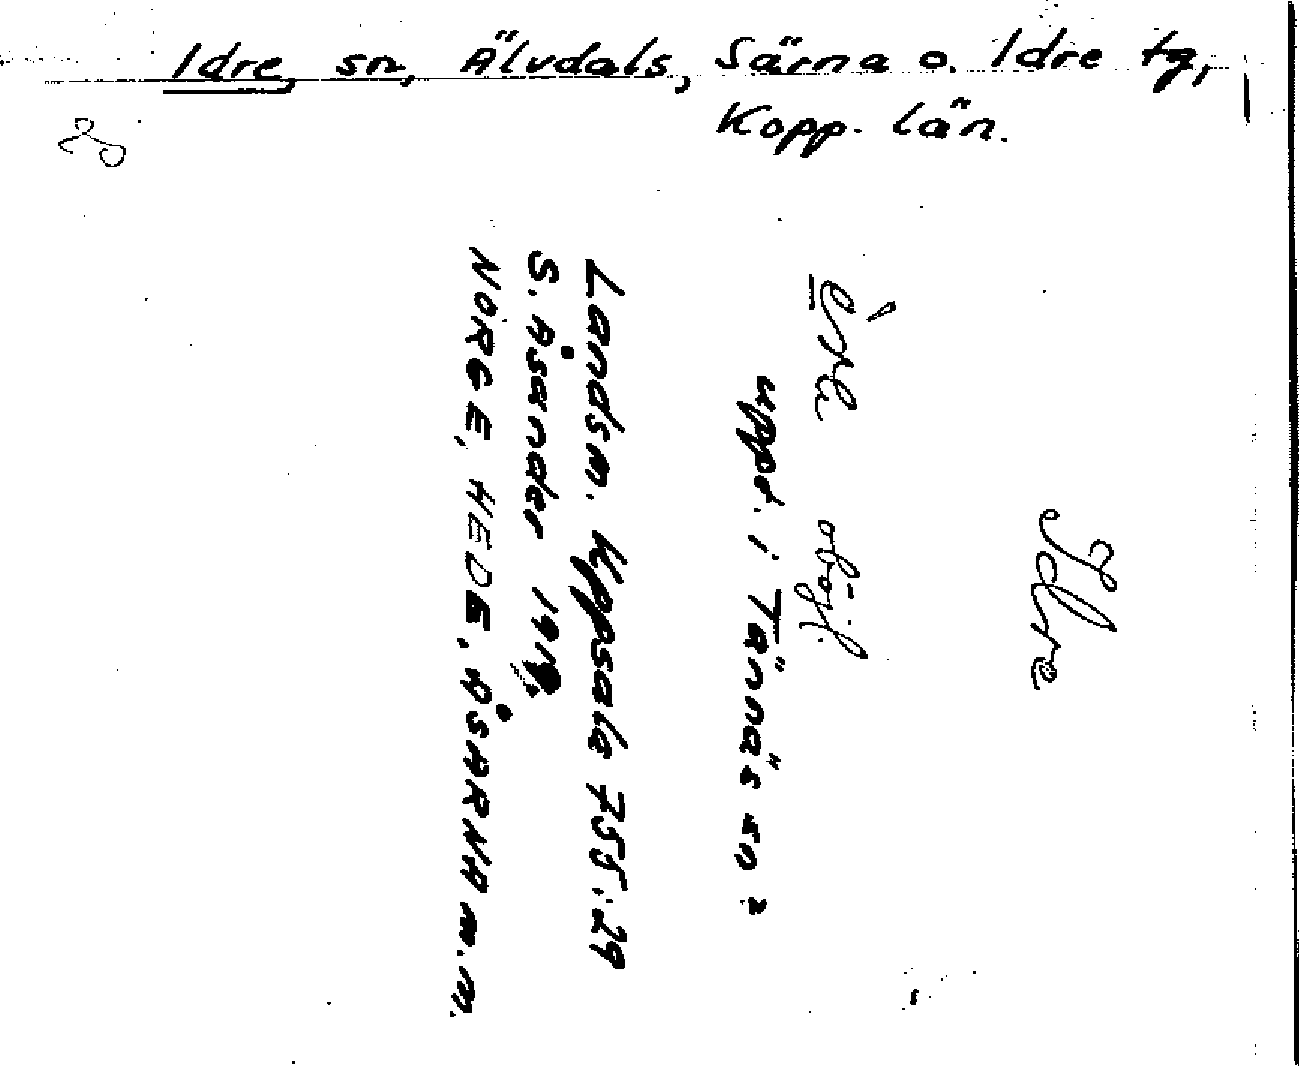 Idre, sn, Älvdals, Särna o. Idre tg,
Kopp. län.
Idre
oböjl.
uppt. i Tännäs sn?
Landsm. Uppsala 755:29
S. Åsander
NORGE, HEDE, ÅSARNA m.m.